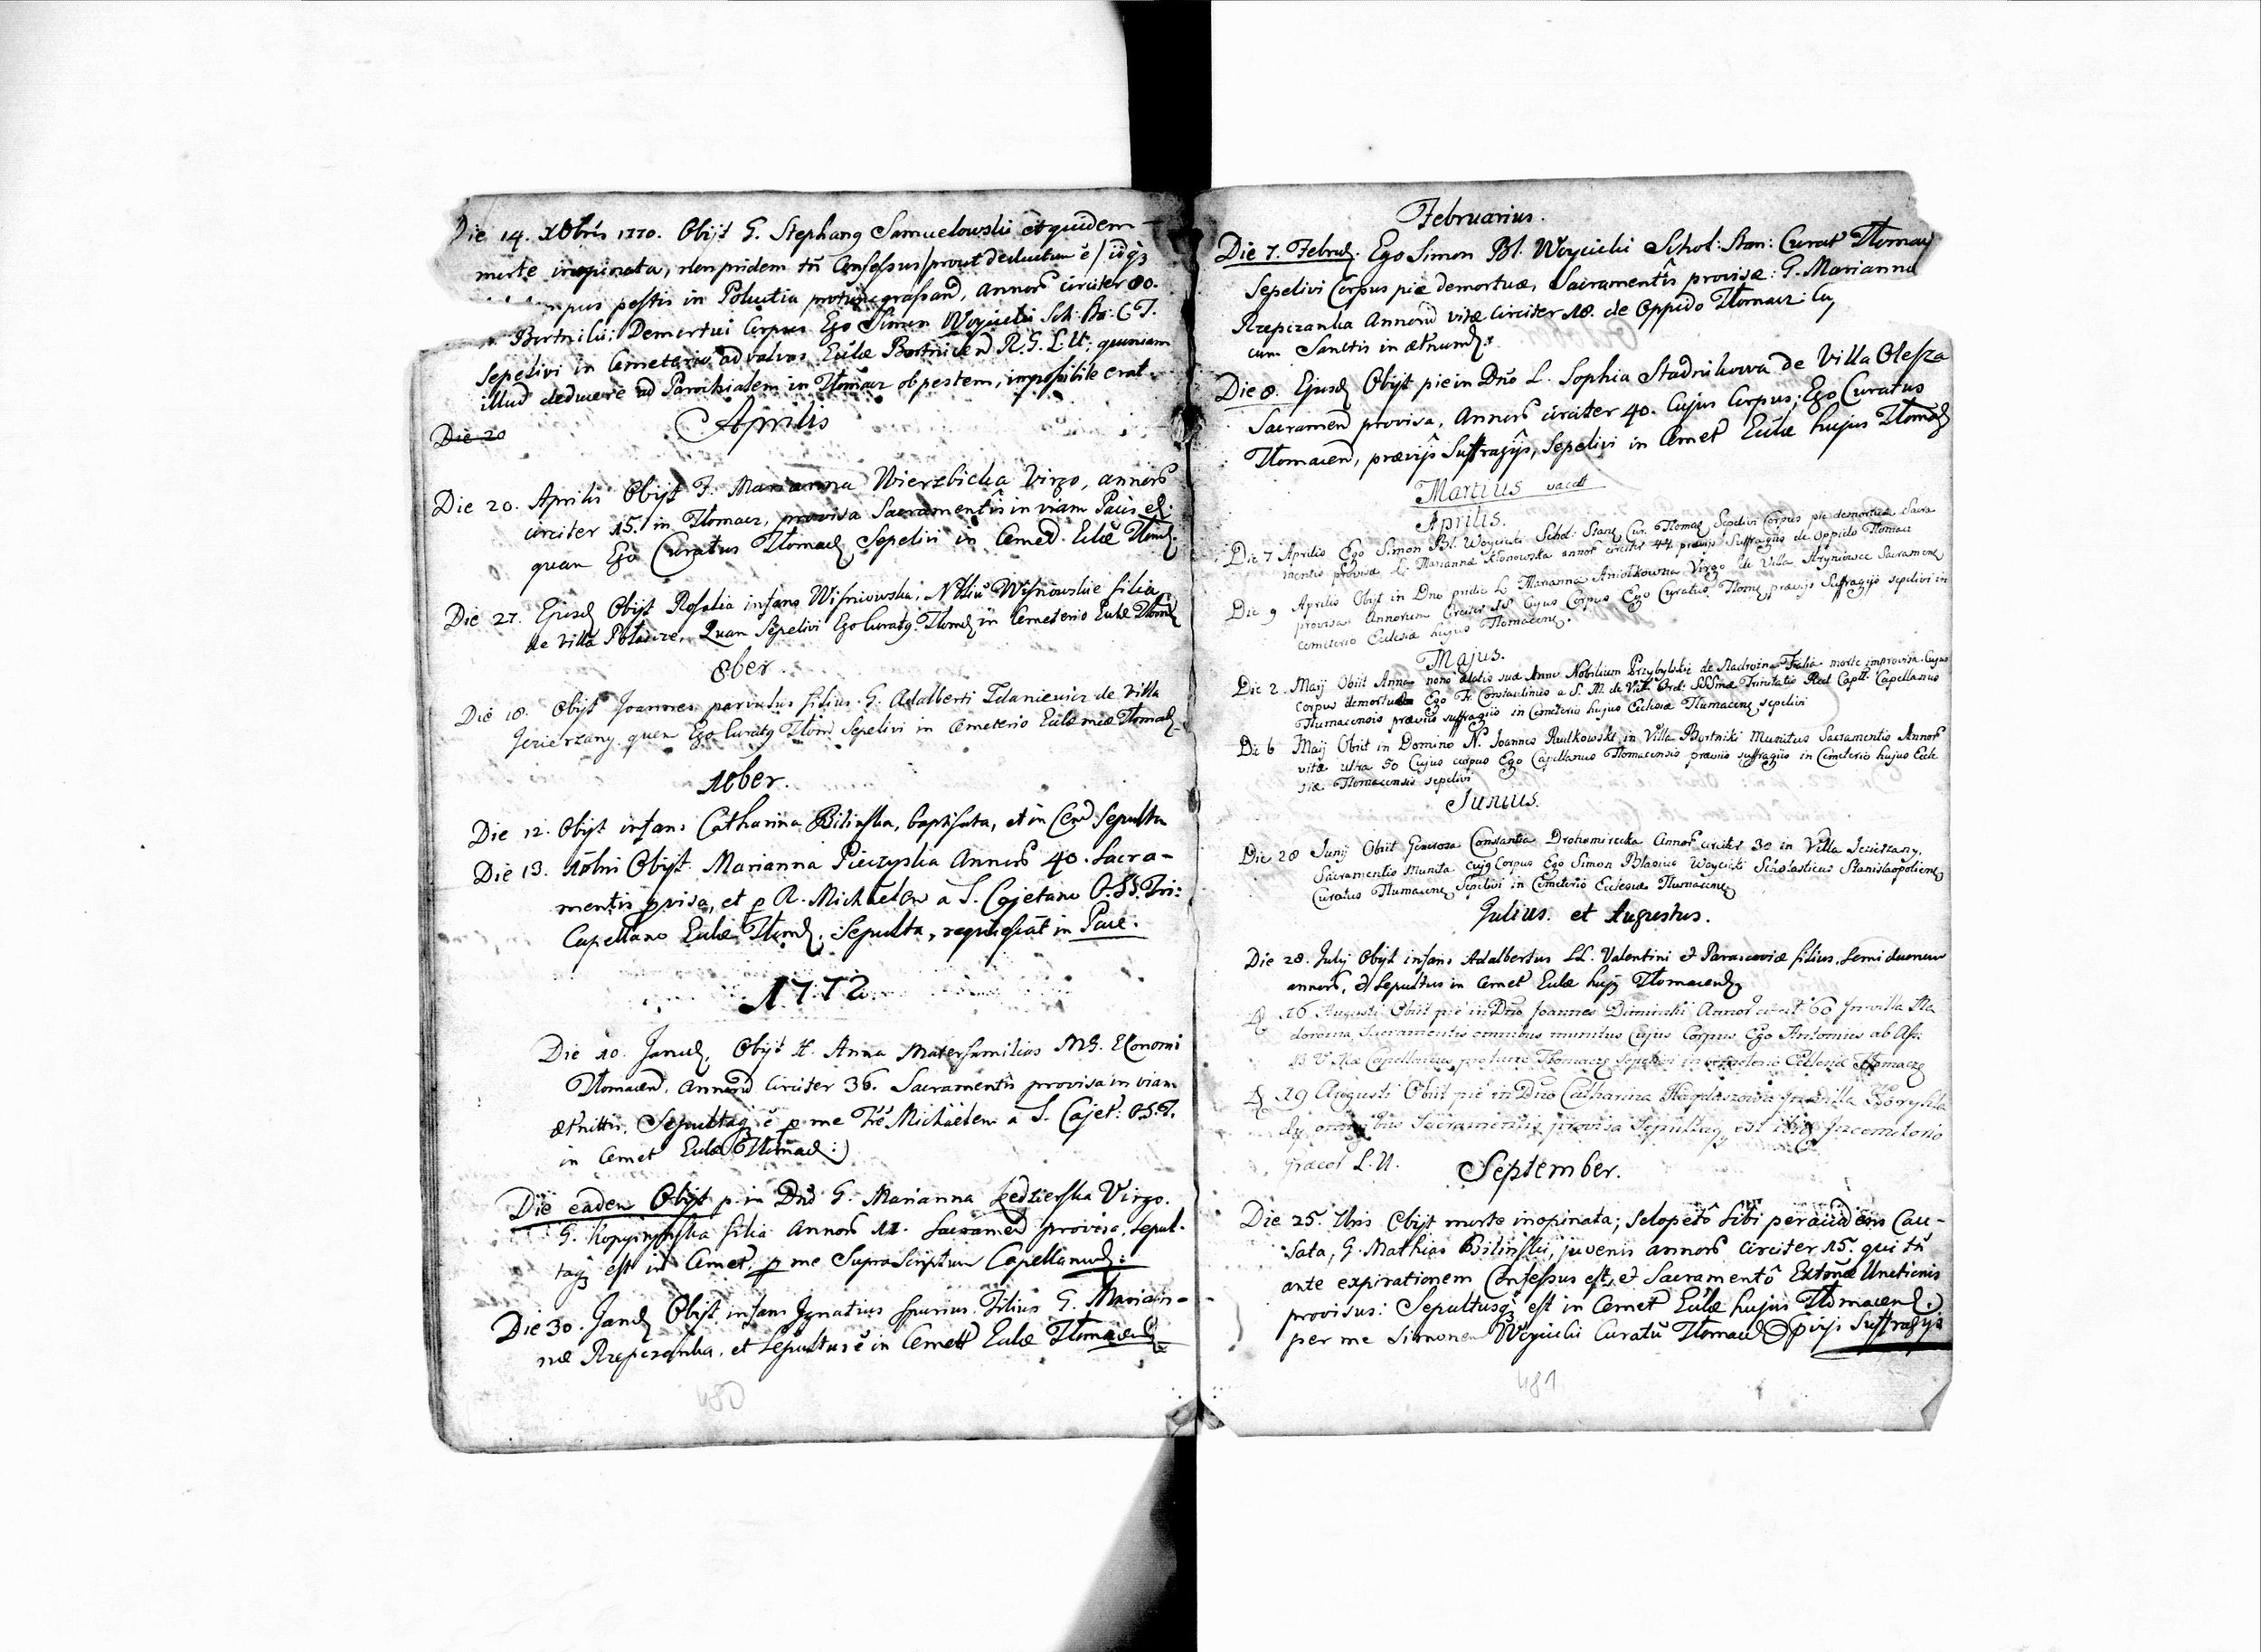 Die 14. Xbris 1770. Obijt G. Stephang Samuelowski et quidem
morte inopinata, non pridem tñ Confessus / prout deductum ẽ / idq3
tempus pestis in Pokutia grassand, annorũ circiter 80.
Bortniki: Demortui Corpus Ego Simon Woyucki Sch: St: C. T.
Sepelivi in Cemeterio ad valvas Eulæ Bortnicen R. G. L. U: quoniam
illud deducere ad Parochialem in Tłomacz ob pestem, impossibile erat.
Aprilis
Die 20
Die 20. Aprilis Obijt F. Marianna Wierzbicka Virgo, annorũ
circiter 15. in Tłomacz, provisa Sacramentis in viam Pacis
quam Ego Curatus Tłomac Sepelivi in Cemet. Eulæ Tłom
Die 27. Ejusd Obijt Rosalia infans Wisniowska, Nbliũ Wisniowskie filia
de Villa Pałahicze, Quam Sepelivi Ego Curatg Tłom in Cemeterio Eulæ Tłom
8ber.
Die 18. Obijt Joannes parvulus filius G. Adalberti Zdaniewicz de Villa
Jezierzany quem Ego Curatg Tłom Sepelivi in Cemeterio Eulæ meæ Tłomac
10ber.
Die 12. Obijt infans Catharina Bilinska, baptisata, et in Cem Sepulta
Die 13. 10bri Obijt Marianna Pieczyska Annorũ 40. Sacra-
mentis pvisa, et p R. Michaelem a S. Cajetano O. SS. Tri:
Capellano Eulæ Tłom. Sepulta, requiescat in Pace.
1772.
Die 10. Janu, Obijt H. Anna Materfamilias MG. Economi
Tłomacen. annorũ circiter 36. Sacramentis provisa in viam
ætnittis, Sepultaq ẽ p me Frẽ Michaelem a S. Cajet: OST.
in Cemet Eulæ Tłomac:)
Die eadem Obijt p. in Dnõ G. Marianna Kedzierska Virgo.
G. filia Annorũ 11. Sacramen provisa, sepul-
taq est in Cemet, p me Suprascriptum Capellanum:
Die 30. Janu Obijt infans Ignatius spurius Filius G. Marian-
næ Rzepczanka. et Sepultus ẽ in Cemett Eulæ Tłomacen
480
Februarius.
Die 7. Febru. Ego Simon Bl. Woyucki Schol: Stan: Curat Tłomac
Sepelivi Corpus piæ demortuæ, Sacramentis provisæ: G. Marianna
Rzepczanka Annorũ vitæ circiter 18. de Oppido Tłomacz:
cum Sanctis in ætnum
Die 8. Ejusd Obijt pie in Dnõ L. Sophia Stadnikowa de Villa Olesza
Sacramen provisa, Annorũ circiter 40. Cujus Corpus, Ego Curatus
Tłomacen, prævijs Suffragijs, Sepelivi in Cemet Eulæ hujus Tłomac
Martius vacatt
Aprilis.
Die 7 Aprilis Ego Simon Bl. Woyucki Schol: Stan Cur. Tłomac Sepelivi Corpus pie demortuæ Sacra
mentis provisæ L: Mariannæ Klonowska annor circiter 44 prævijs Suffragiis de oppido Tłomacz
Die 9 Aprilis Obijt in Dno pridie L Marianna Aniołkowna Virgo de Villa Hryniowce Sacramen
provisa Annorum Circiter 18 Cujus Corpus Ego Curatus Tłom prævijs Suffragijs sepelivi in
cemeterio Ecclesiæ hujus Tłomacen.
Majus.
Die 2. Maij Obiit Anna nono ætatis suæ Anno Nobilium Przybylskie de Nadrozna Filia morte improvisa. Cujus
Corpus demortuæ Ego Fr. Constantinus a S. M. de Vict. Ord: SSSmæ Trinitatis Red Capt: Capellanus
Tłumacensis præviis suffragiis in Cemeterio hujus Ecclesiæ Tłumacen sepelivi
Die 6 Maij Obiit in Domino N. Joannes Rutkowski in Villa Bortniki Munitus Sacramentis Annor
vitæ ultra 50 Cujus corpus Ego Capellanus Tłomacensis præviis suffragiis in Cemeterio hujus Eccle
siæ Tłomacensis sepelivi
Junius.
Die 28 Junij Obiit Generosa Constantia Drohomirecka Annor circiter 30 in Villa Jezierzany,
Sacramentis Munita Cujg Corpus Ego Simon Blasius Woyucki Scholasticus Stanislaopolien
Curatus Tłumacen, Sepelivi in Cemeterio Ecclesiæ Tłumacen
Julius. et Augustus.
Die 28. Julij Obijt infans Adalbertus LL. Valentini et Parascoviæ filius, semi duorum
annorũ, et Sepultus in Cemet Eulæ hujg Tłomacen
D 16 Augusti Obiit pie in Dno Joannes Diminski Annor circit 60 In villa Na
dorozna Sacramentis omnibus munitus Cujus Corpus Ego Antonius ab Ass:
B V Mæ Capellanus pro tunc Tłomacz Sepelivi in cemeterio Ecclesiæ Tłomacz
D 29 Augusti Obiit pie in Dno Catharina In Villa
omnibus Sacramentis provisa Sepultaq est ibid In cemeterio
græcor L. U.
September.
Die 25. Obijt morte inopinata; sclopetô sibi per accidens Cau-
sata, G. Mathias Bilinski, juvenis annorũ circiter 15. qui tñ
ante expirationem Confessus est, et Sacramentô Extremæ Unctionis
provisus: Sepultusq est in Cemet Eulæ hujus Tłomacen.)
per me Simonem Woyucki Curatũ Tłomac pvijs Suffragijs
481